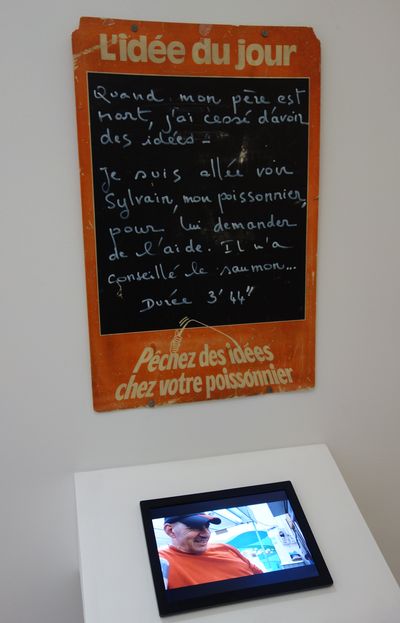 L'idée du jour
Quand mon père est
mort, j'ai cessé d'avoir
des idées -
Je suis allée voir
Sylvain, mon poissonnier,
pour lui demander
de l'aide. Il m'a
conseillé le saumon...
Durée 3'44"
Pêchez des idées
chez votre poissonnier